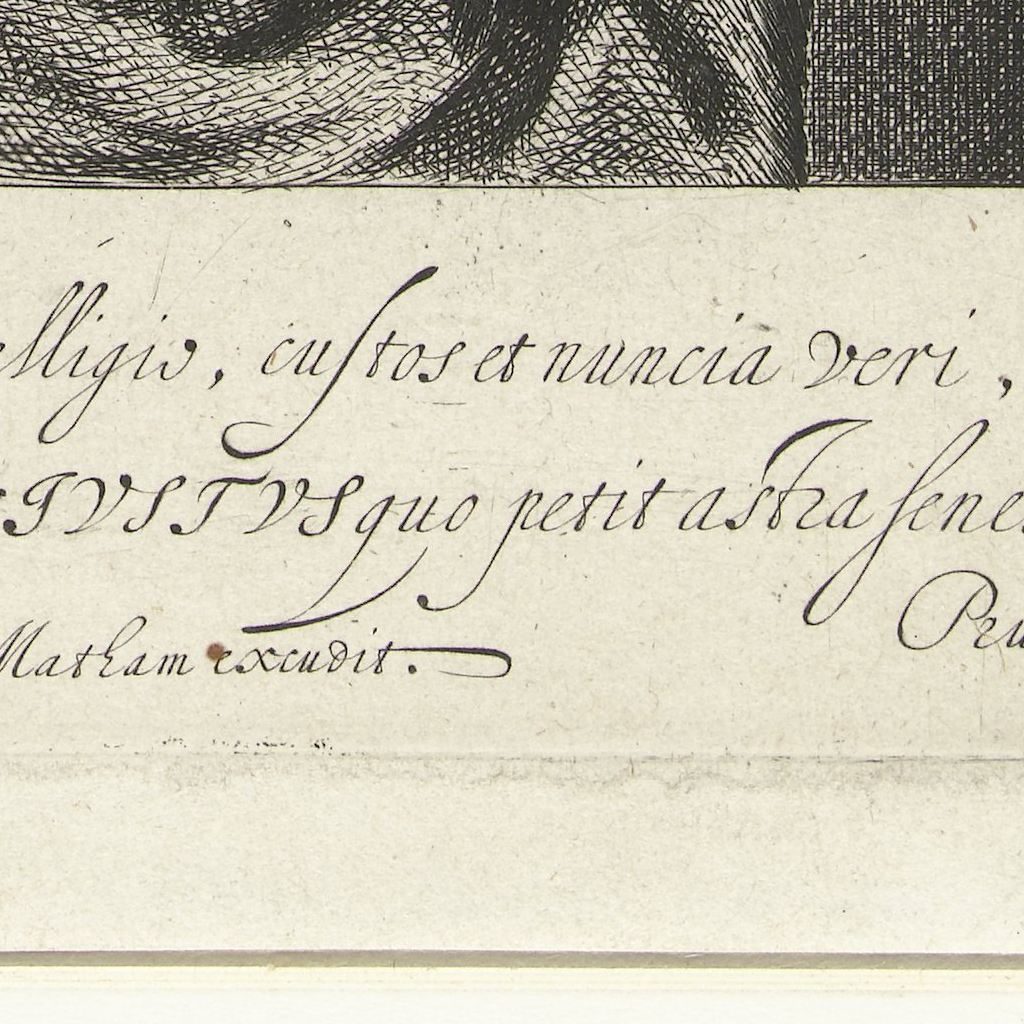 elligio, custos et nuncia veri,
IVSTVS quo petit astra senex
Matham excudit.